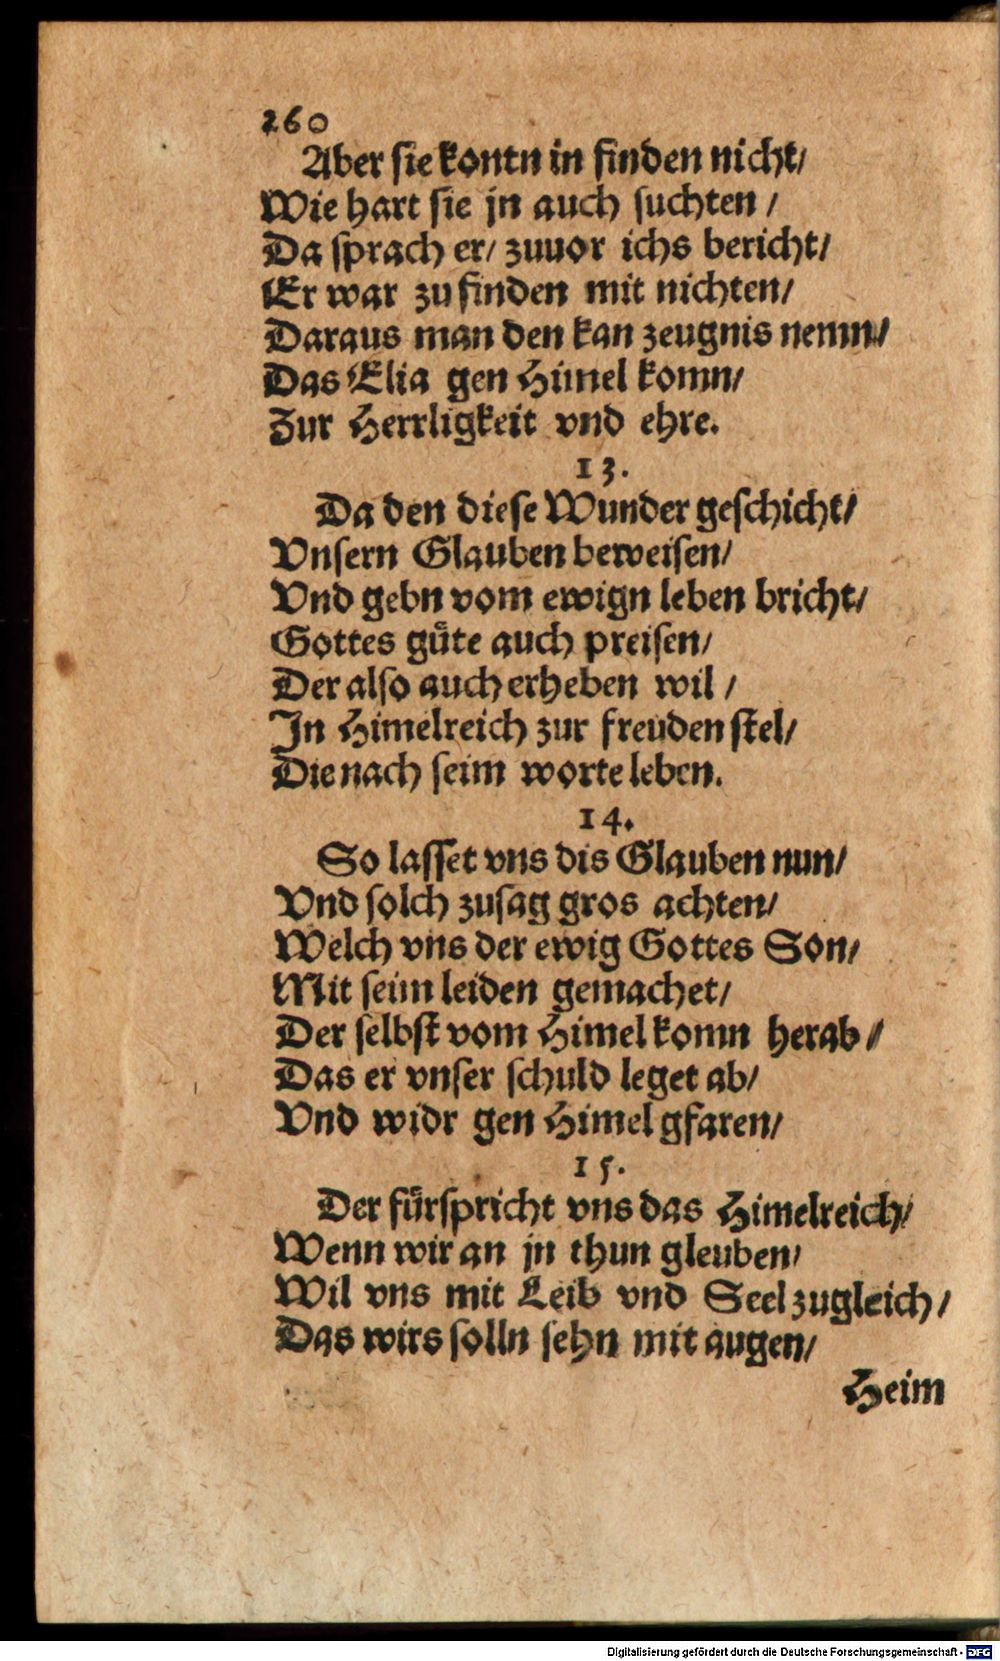 260
Aber sie kontn in finden nicht/
Wie hart sie jn auch suchten /
Da sprach er/ zuuor ichs bericht/
Er war zu finden mit nichten/
Daraus man den kan zeugnis nemn/
Das Elia gen Himel komn/
Zur Herrligkeit vnd ehre.
13.
Da den diese Wunder geschicht/
Vnsern Glauben beweisen/
Vnd gebn vom ewign leben bricht/
Gottes guͤte auch preisen/
Der also auch erheben wil /
In Himelreich zur freuden stel/
Die nach seim worte leben.
14.
So lasset vns dis Glauben nun/
Vnd solch zusag gros achten/
Welch vns der ewig Gottes Son/
Mit seim leiden gemachet/
Der selbst vom Himel komn herab/
Das er vnser schuld leget ab/
Vnd widr gen Himel gfaren/
15.
Der fuͤrspricht vns das Himelreich/
Wenn wir an jn thun gleuben/
Wil vns mit Leib vnd Seel zugleich/
Das wirs solln sehn mit augen/
Heim
Digitalisierung gefördert durch die Deutsche Forschungsgemeinschaft - DFG